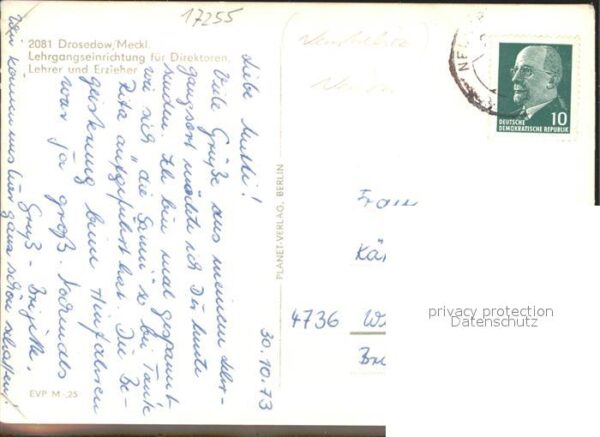 17255
2081 Drosedow/Meckl.
Lehrgangseinrichtung für Direktoren,
Lehrer und Erzieher
30.10.73
Liebe Mutti!
Viele Grüße aus meinem Lehr-
gangsort möchte ich Dir heute
senden. Ich bin mal gespannt
wie sich die Sanni so bei Tante
Rita aufgeführt hat. Die Be-
geisterung beim Hinfahren
war ja groß. Nochmals
Gruß - Brigitte.
Wir kommen hier ganz schön
EVP M -,25
PLANET-VERLAG, BERLIN
10
DEUTSCHE
DEMOKRATISCHE REPUBLIK
NEU
Frau
Kä
4736 W
privacy protection
Datenschutz